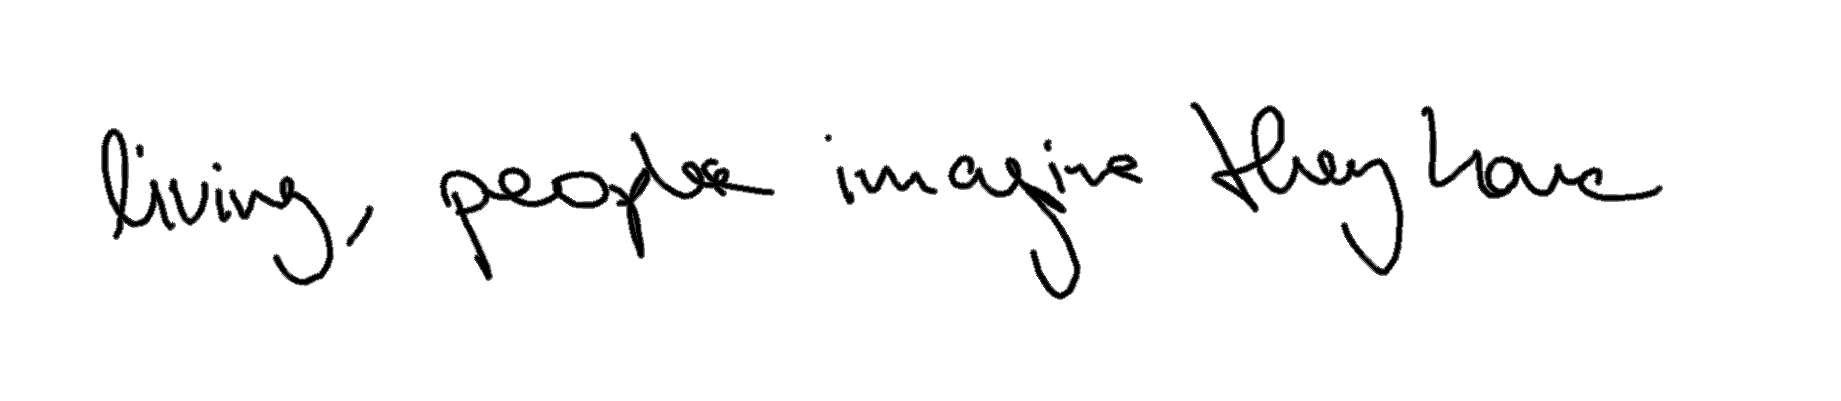 living, people imagine they have